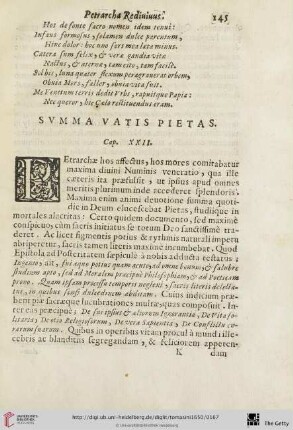 Petrarcha Redivivus.
145
Hoc de fonte sacro nomen idem tenui:
Infans formosus, solamen dulce parentum,
Hinc dolor: hoc uno sors mea laeta minus.
Cætera sum felix, & veræ gaudia vitæ
Nactus, & æterna, tam cito, tam facile.
Sol bis, luna quater flexum peragraverat orbem,
Obvia Mors, fallor, obvia vita fuit.
Me Venetum terris dedit Urbs, rapuitque Papia:
Nec queror, hic Cælo restituendus eram.
SVMMA VATIS PIETAS.
Cap. XXII.
PEtrarchæ hos affectus, hos mores comitabatur
maxima divini Numinis veneratio, quæ ille
cæteris ita præfulsit, ut ipsus apud omnes
meritis plurimum inde recederet splendoris.
Maxima enim animi devotione summa quotidie
in Deum elucescebat Pietas, studiique in
mortales alacritas: Certo quidem documento, sed maximè
conspicuo, cùm sacris initiatus se totum Deo sanctissimè traderet.
Ac licet figmentis potius & rythmis naturali impetu
abriperetur, sacris tamen literis maximè incumbebat. Quod
Epistola ad Posteritatem sæpiculè à nobis adducta testatus:
Ingenio, ait, fui æquo potius quàm acuto, ad omne bonum, & salubre
studium apto, sed ad Moralem præcipuè philosophiam, & ad Poeticam
prono. Quam ipsam processu temporis neglexi, sacris literis delectatus,
in quibus sensi dulcedinem abditam. Cuius indicium præbent
piæ sacræque lucubrationes multæ; quas composuit. Inter
eas præcipuè; De sui ipsius, & aliorum Ignorantia, De Vita solitaria;
De otio Religiosorum, De vera Sapientia; De Conflictu curarum
suarum. Quibus in operibus vitam procul à mundi illecebris
ac blanditiis segregandam, & feliciorem apperen-
K
dam
http://digi.ub.uni-heidelberg.de/diglit/tomasini1650/0167
© Universitätsbibliothek Heidelberg
The Getty